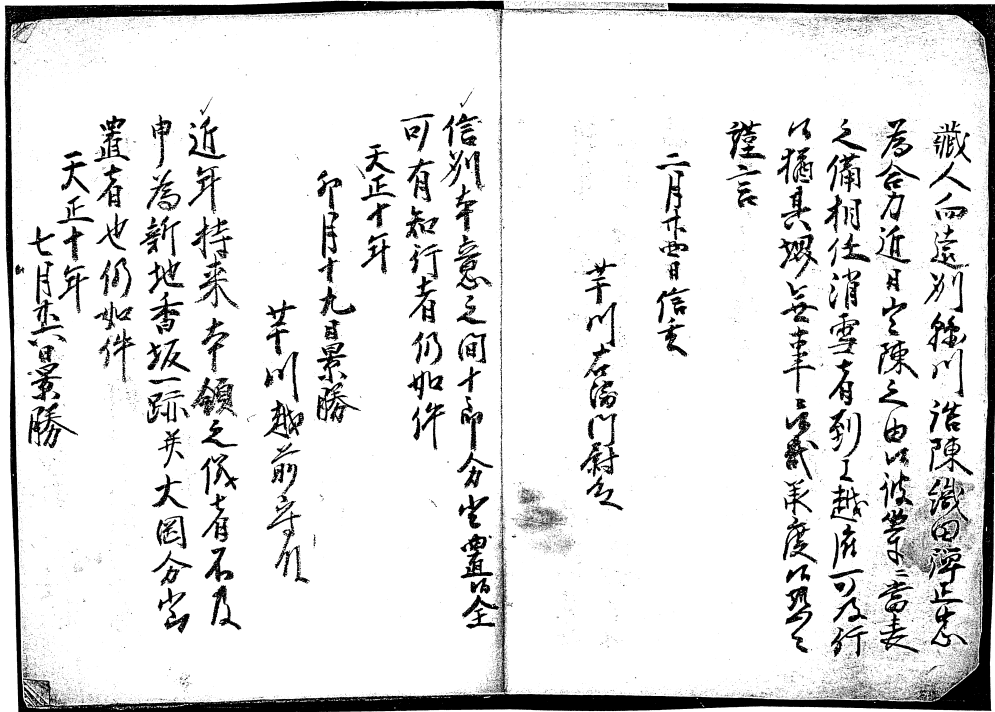 藏人向遠州鉢川詣陳織田弾正忠
為合力近日定陳之由以彼業ニ當表
之備相任消雪者到上越府可及行
候猶其堺無事ニ候哉承度候恐々
謹言
二月廿四日信玄
芋川右衛門尉殿
信州本意之間十郎分出置候全
可有知行者仍如件
天正十年
卯月十九日景勝
芋川越前守殿
近年持来本領之儀者不及
申為新地香坂一跡并大岡分出
置者也仍如件
天正十年
七月廿六日景勝